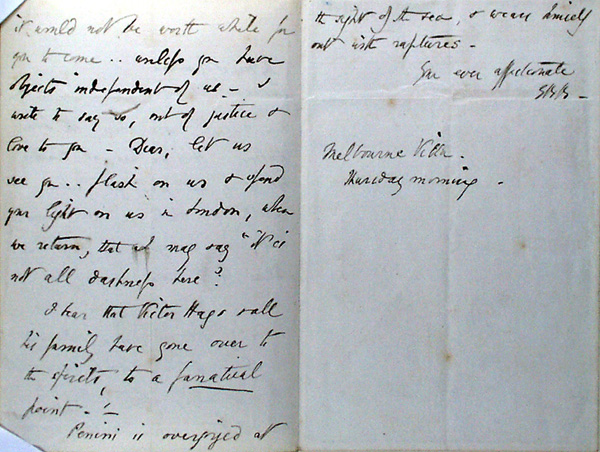 it would not be worth while for
you to come .. unless you have
objects independent of us - I
write to say so, out of justice &
love to you - Dear, let us
see you .. flash on us & spend
your light on us in London, when
we return, that we may say "It is
not all darkness here?
I hear that Victor Hugo & all
his family have gone over to
the spirits, to a fanatical
point - !-
Penini is overjoyed at
the sight of the sea, & wears himself
out with raptures -
Your ever affectionate
EBB -
Melbourne Villa .
Thursday morning -